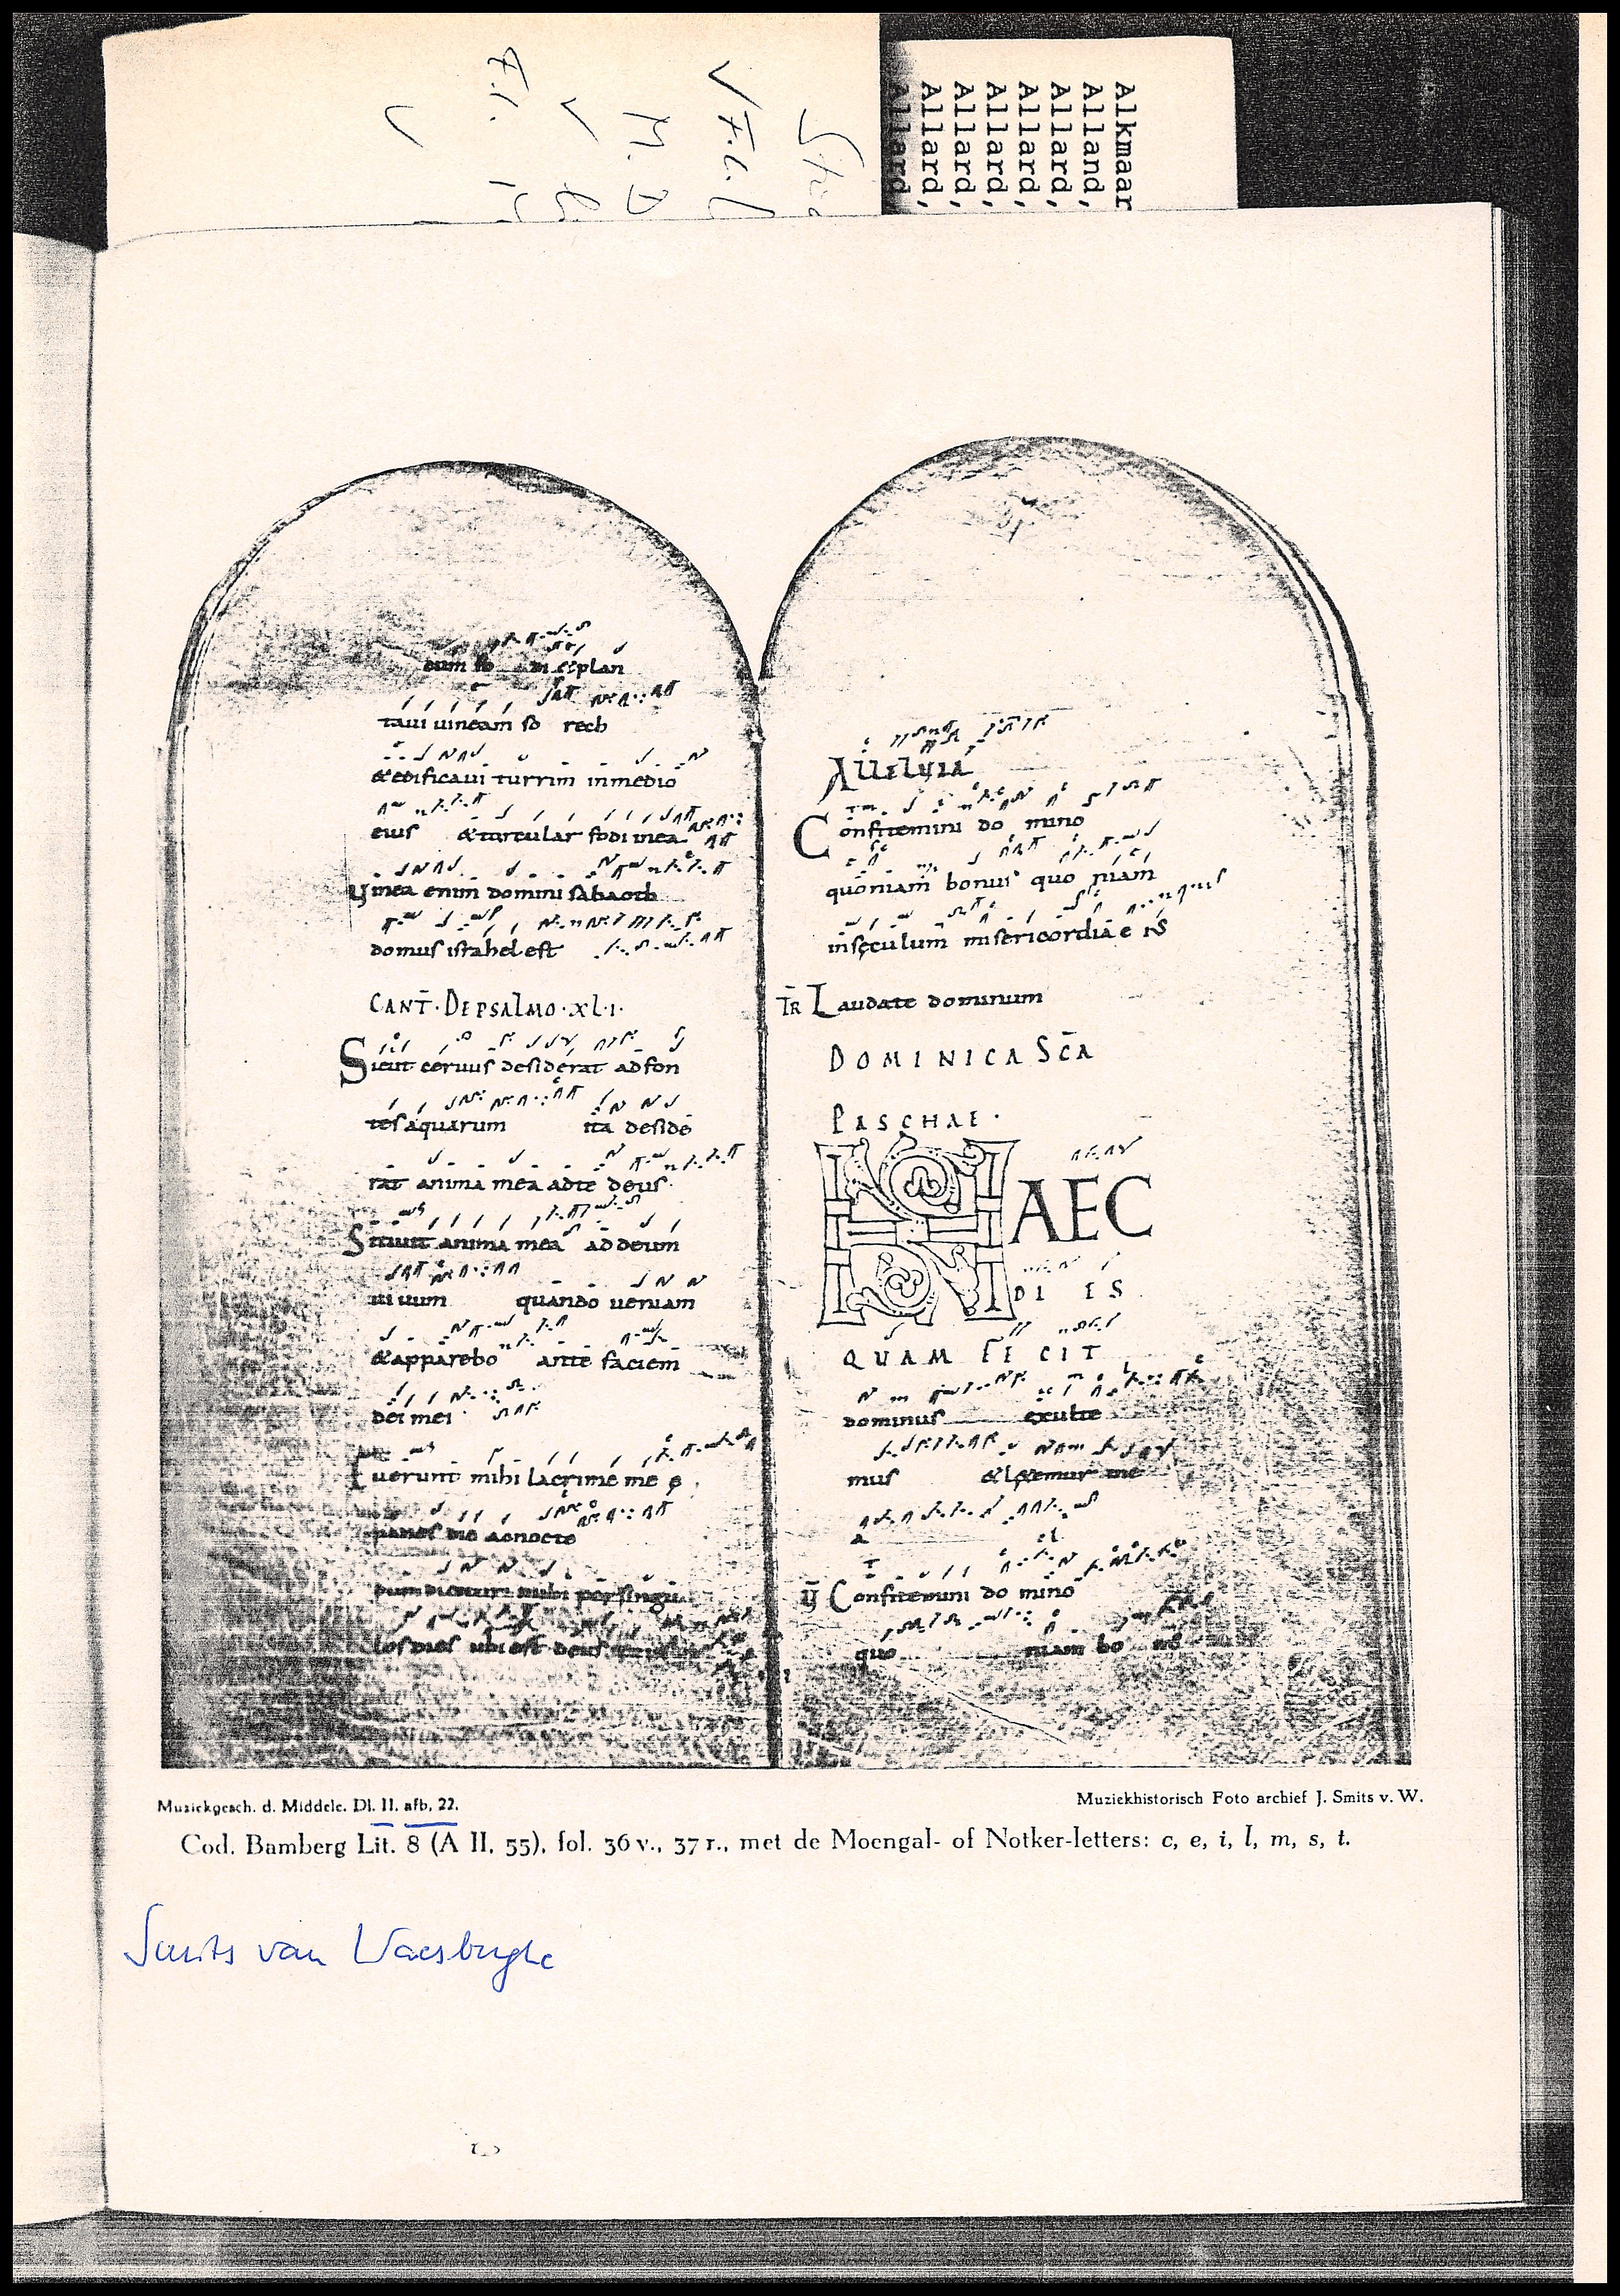 Alkmaar
Alland,
Allard,
Allard,
Allard,
Allard,
Allard,
Allard,
taui uineam so rech
&edificaui turrim inmedio
eius &torcular fodi inea
ỹ inea enim domini sabaoth
domus israhel est
CANT̄·DEPSALMO·XLI·
Sicut ceruus desiderat adfon
tes aquarum ita deside
rat anima mea adte deus·
Sitiuit anima mea addeum
uiuum quando ueniam
&apparebo ante faciem
dei mei
Fuerunt mihi lacrime me e
panes die acnocte
dum dicitur mihi persingu
los dies ubi est deus
ALLELUIA
Confitemini do mino
quoniam bonus quo niam
insęculum misericordia e iS
T̄R Laudate dominum
DOMINICA SC̄A
PASCHAE·
HAEC
DI ES
QUAM FE CIT
dominus exulte
mus &l&emur ine
a
ỹ Confitemini do mino
quo niam bo nus
Muziekgesch. d. Middele. Dl. II. afb. 22.
Muziekhistorisch Foto archief J. Smits v. W.
Cod. Bamberg Lit. 8 (A II. 55), fol. 36 v., 37 r., met de Moengal- of Notker-letters: c, e, i, l, m, s, t.
Smits van Waesberghe